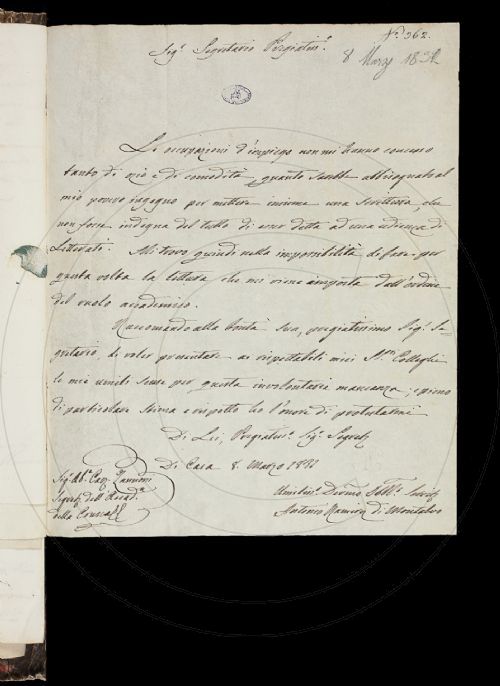 N.º 362.
8 Marzo 1832
Sig.r Segretario Pregiatiss.o
Le occupazioni d'impiego non mi hanno concesso
tanto di ozio e di comodità, quanto sarebbe abbisognato al
mio povero ingegno per mettere insieme una Scrittura, che
non fosse indegna del tutto di esser detta ad una udienza di
Letterati. Mi trovo quindi nella impossibilità di fare per
questa volta la lettura che mi viene imposta dall'ordine
del ruolo accademico.
Raccomando alla bontà sua, pregiatissimo Sig.r Se-
gretario, di voler presentare ai rispettabili miei SS.ri Colleghi
le mie umili scuse per questa involontaria mancanza; e pieno
di particolare stima e rispetto ho l'onore di protestarmi
Di Lei, Pregiatiss.o Sig.r Segret.o
Di Casa 8. Marzo 1832
Sig.r Ab.e Cav. Zannoni
Segret. dell'Accad.a
della Crusca
Umiliss. Devmo Obb.o Servit.e
Antonio Ramirez di Montalvo